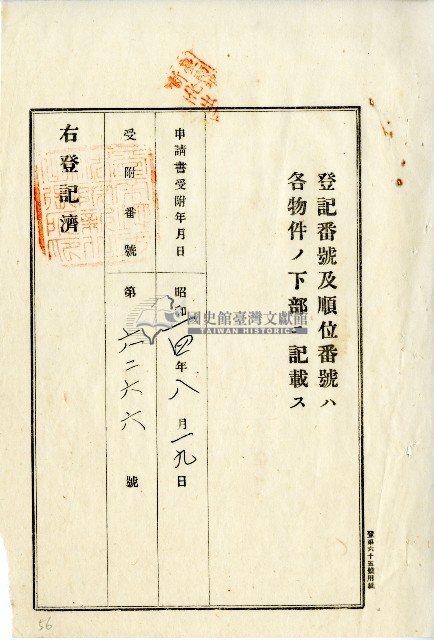 登記番號及順位番號ハ
各物件ノ下部ニ記載ス
申請書受附年月日 昭和一四年八月一九日
受附番號 第六二六六號
右登記濟
登第六十五號用紙
國史館臺灣文獻館
TAIWAN HISTORICA
56